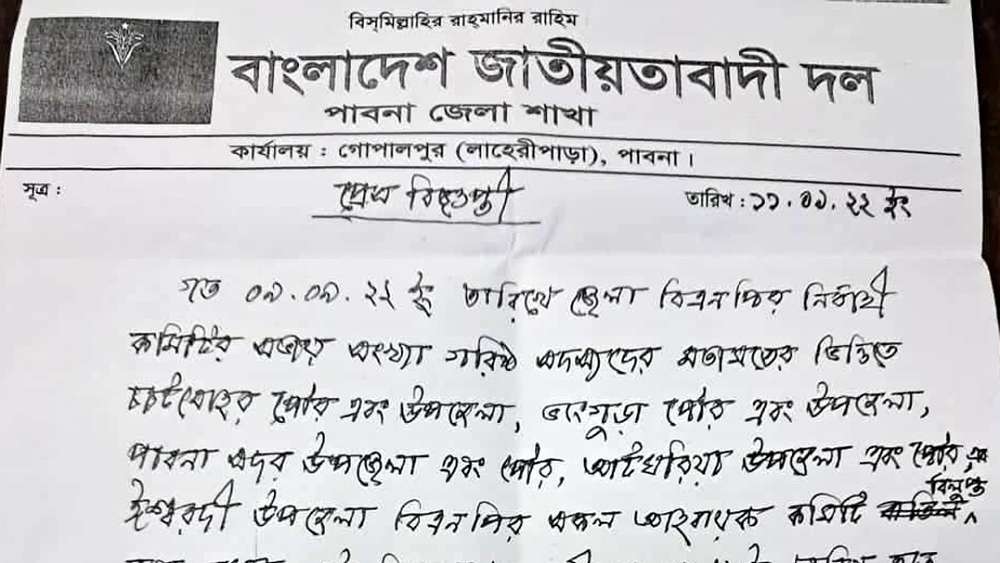 বিস্‌মিল্লাহির রাহ্‌মানির রাহিম
বাংলাদেশ জাতীয়তাবাদী দল
পাবনা জেলা শাখা
কার্যালয় : গোপালপুর (লাহেরীপাড়া), পাবনা।
সূত্র :
প্রেস বিজ্ঞপ্তী
তারিখ : ১১.০৯.২২ ইং
গত ০৯.০৯.২২ ইং তারিখে জেলা বিএনপির নির্বাহী
কমিটির সভায় সংখ্যা গরিষ্ঠ সদস্যদের মতামতের ভিত্তিতে
চাটমোহর পৌর এবং উপজেলা, ভাঙ্গুড়া পৌর এবং উপজেলা,
পাবনা সদর উপজেলা এবং পৌর, আটঘরিয়া উপজেলা এবং পৌর,
ঈশ্বরদী উপজেলা বিএনপির সকল আহবায়ক কমিটি বিলুপ্ত